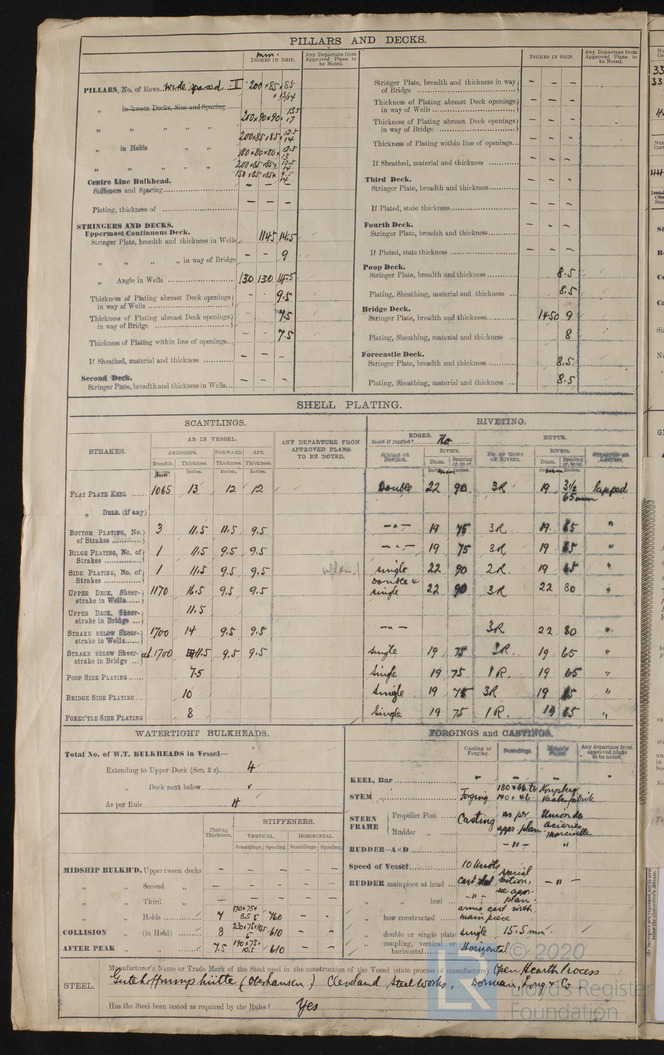 PILLARS AND DECKS.
mm.
INCHES IN SHIP.
Any Departure from Approved Plans to be Noted.
INCHES IN SHIP.
Any Departure from Approved Plans to be Noted.
PILLARS, No. of Rows. Wide spaced II 200 × 85 × 85
× 13/14
in 'tween Decks, Size and Spacing
200×90×90× 13.5/17
200×85×85× 12.5/14
" in Holds 180×80×80× 12.5/13
Centre Line Bulkhead.
Stiffeners and Spacing - - -
Plating, thickness of - - -
STRINGERS AND DECKS.
Uppermost Continuous Deck.
Stringer Plate, breadth and thickness in Wells 1145 14.5
" " " " in way of Bridge - - 9
" Angle in Wells 130 130 14.5
Thickness of Plating abreast Deck openings in way of Wells - - 9.5
Thickness of Plating abreast Deck openings in way of Bridge - - 7.5
Thickness of Plating within line of openings - - 7.5
If Sheathed, material and thickness - - -
Second Deck.
Stringer Plate, breadth and thickness in Wells - - -
Stringer Plate, breadth and thickness in way of Bridge - - -
Thickness of Plating abreast Deck openings in way of Wells - - -
Thickness of Plating abreast Deck openings in way of Bridge - - -
Thickness of Plating within line of openings - - -
If Sheathed, material and thickness - - -
Third Deck.
Stringer Plate, breadth and thickness - - -
If Plated, state thickness - - -
Fourth Deck.
Stringer Plate, breadth and thickness - - -
If Plated, state thickness - - -
Poop Deck.
Stringer Plate, breadth and thickness 8.5
Plating, Sheathing, material and thickness 8.5
Bridge Deck.
Stringer Plate, breadth and thickness 1450 9
Plating, Sheathing, material and thickness 8
Forecastle Deck.
Stringer Plate, breadth and thickness 8.5
Plating, Sheathing, material and thickness 8.5
SHELL PLATING.
SCANTLINGS.
RIVETING.
STRAKES.
AS IN VESSEL.
AMIDSHIPS. FORWARD AFT.
Breadth. Thickness. Thickness. Thickness.
ANY DEPARTURE FROM APPROVED PLANS TO BE NOTED.
EDGES.
No
RIVERS.
BUTTS.
No. of Rows of Rivets.
FLAT PLATE KEEL 1065 13 12 12 Double 22 90 3R 19 3½ lapped
65 mm
" DBLG. (if any)
BOTTOM PLATING, No. of Strakes 3 11.5 11.5 9.5 -"- 19 75 3R 19 65 "
BILGE PLATING, No. of Strakes 1 11.5 9.5 9.5 -"- 19 75 3R 19 65 "
SIDE PLATING, No. of Strakes 1 11.5 9.5 9.5 single 22 90 2R 19 65 "
UPPER DECK, Sheer-strake in Wells 1170 16.5 9.5 9.5 double & single 22 90 3R 22 80 "
UPPER DECK, Sheer-strake in Bridge 11.5
STRAKE BELOW Sheer-strake in Wells 1700 14 9.5 9.5 -- 3R 22 80 "
STRAKE BELOW Sheer-strake in Bridge 1700 11.5 9.5 9.5 single 19 75 3R 19 65 "
POOP SIDE PLATING 7.5 Single 19 75 1R. 19 65 "
BRIDGE SIDE PLATING 10 Single 19 75 3R 19 65 "
FORE'TLE SIDE PLATING 8 Single 19 75 1R. 19 65 "
WATERTIGHT BULKHEADS.
Total No. of W.T. BULKHEADS in Vessel—
Extending to Upper Deck (Sec. 3 c) 4
" Deck next below
As per Rule 4
Plating Thickness.
STIFFENERS.
VERTICAL. HORIZONTAL.
Scantlings. Spacing. Scantlings. Spacing.
MIDSHIP BULKH'D, Upper tween decks - - - - -
" " Second " - - - - -
" " Third " - - - - -
" " Holds 7 760 - -
COLLISION " (in Hold) 8 610 - -
AFTER PEAK " " 7.5 610 - -
FORGINGS and CASTINGS.
Casting or Forging.
Any departure from approved plans to be noted.
KEEL, Bar - - -
STEM Forging
STERN FRAME Propeller Post Casting as per appr. plan Union des acieries Marcinelle
Rudder " -"- "
RUDDER—A×D
Speed of Vessel 10 Knots
RUDDER mainpiece at head Cast steel special section, see appr. plan -"-
" " heel -"-
" how constructed arms cast with mainpiece
" double or single plate single 15.5 mm
" coupling, vertical or horizontal Horizontal
STEEL.
Manufacturer's Name or Trade Mark of the Steel used in the construction of the Vessel (state process of manufacture) Open Hearth Process
Gutehoffnungshütte (Oberhausen) Cleveland Steel Works, Dorman, Long & Co
Has the Steel been tested as required by the Rules? Yes
© 2020
Lloyd's Register
Foundation